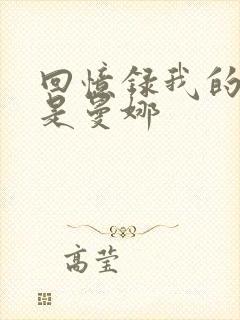 回憶録我的
是曼娜
高莹